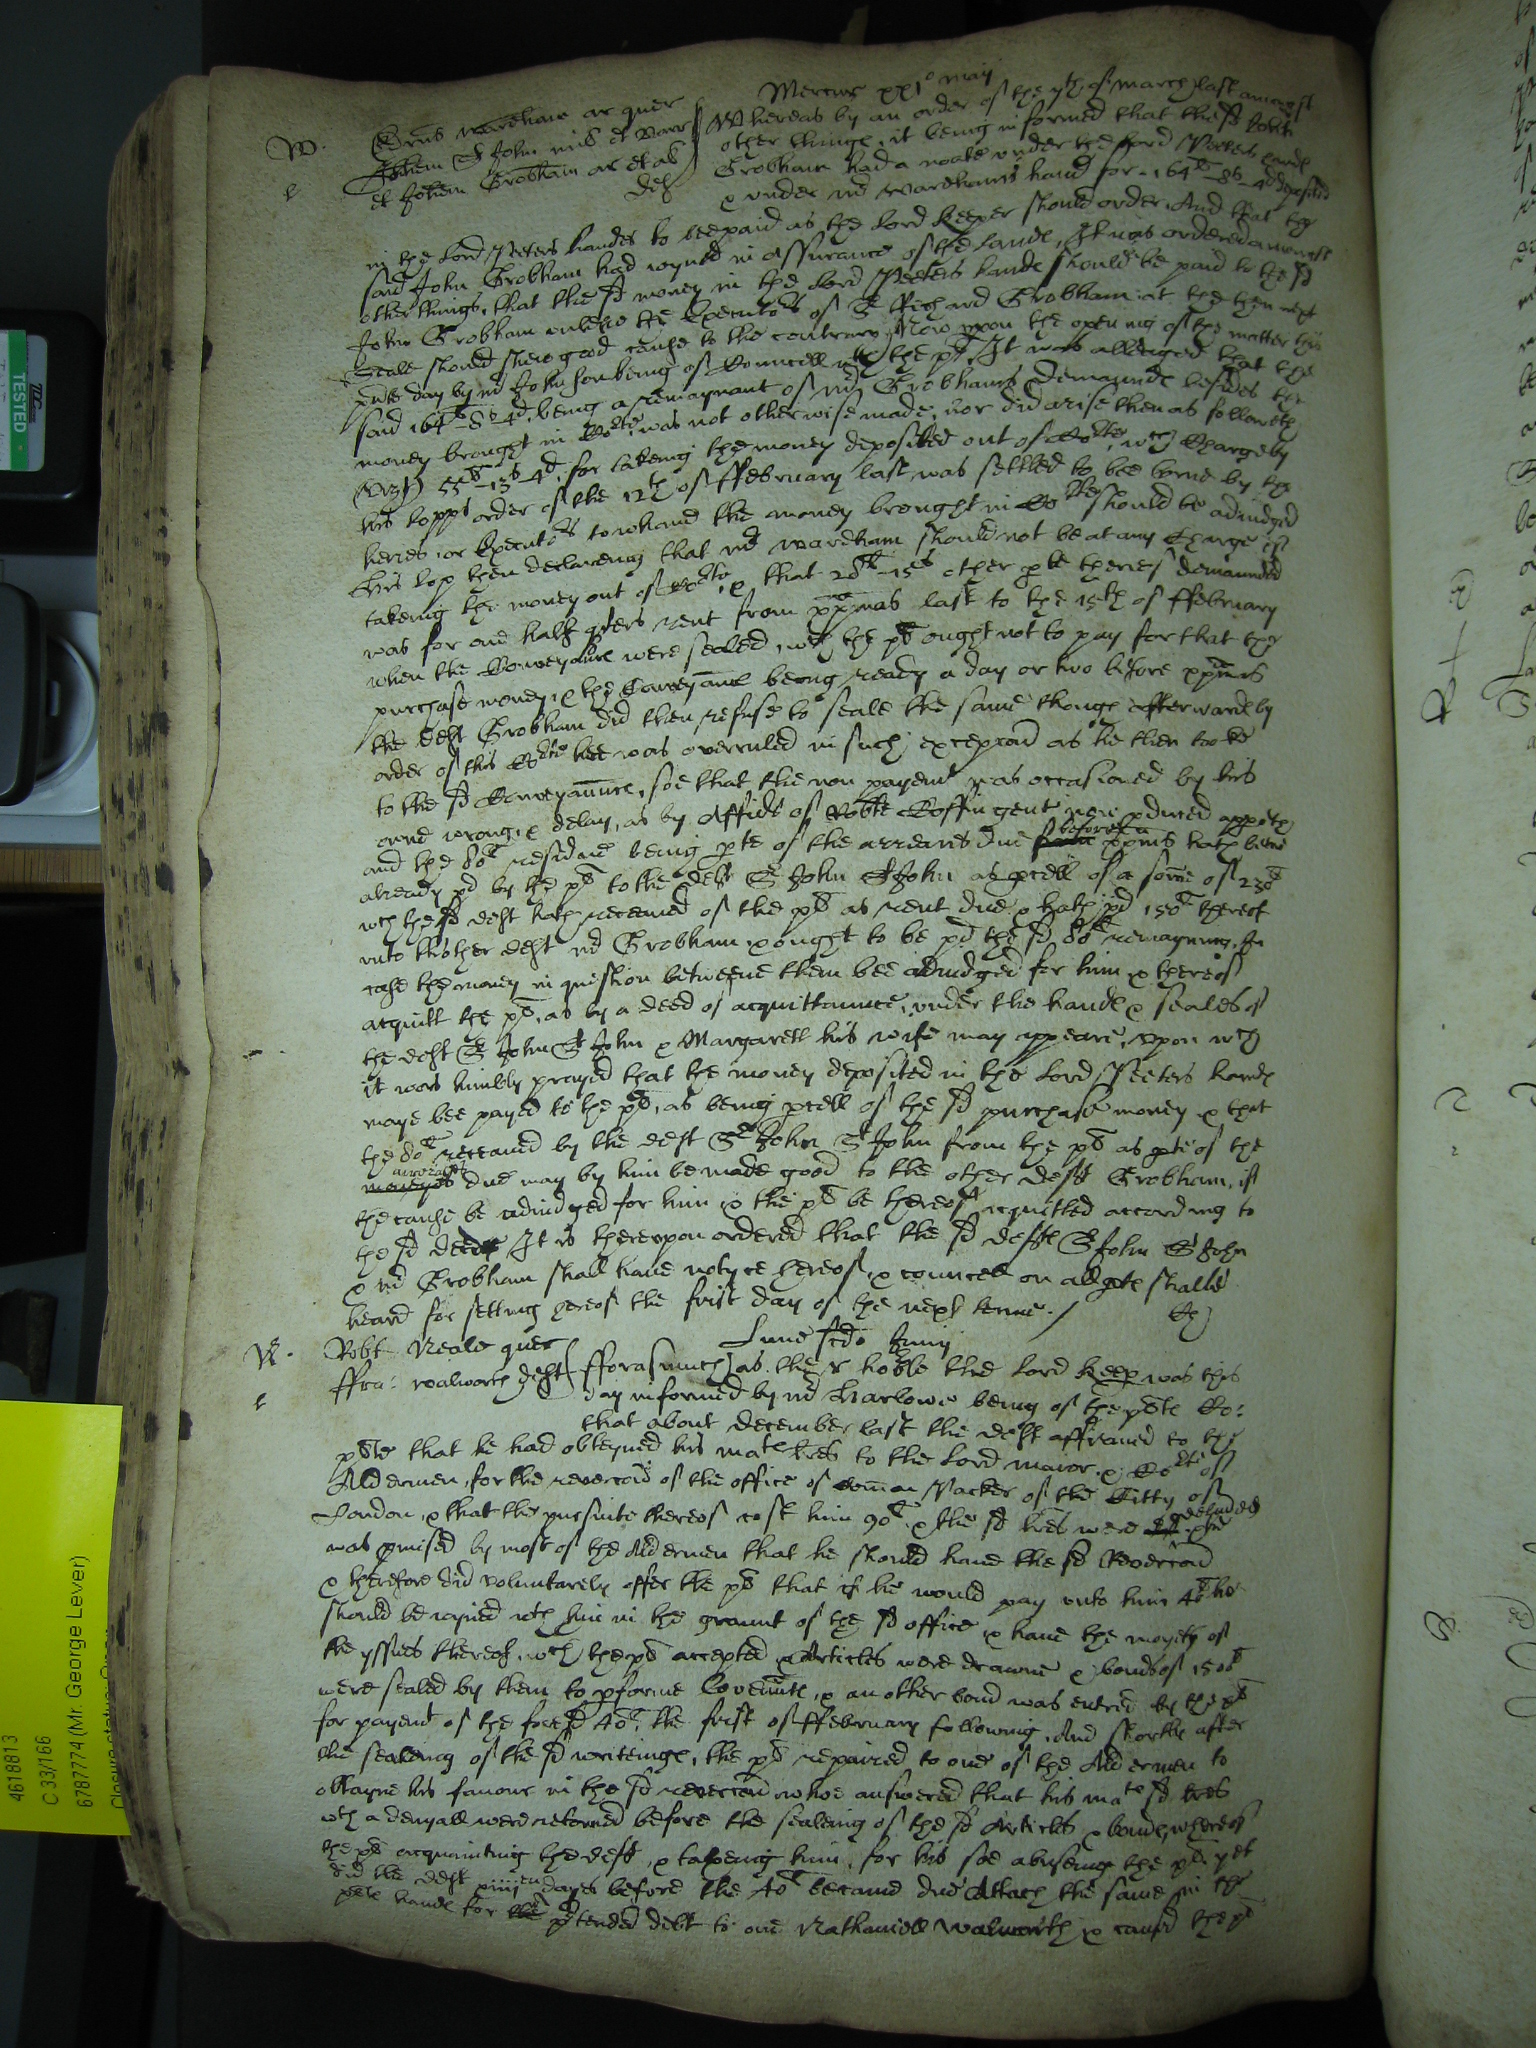 Mercur xxi° maij
W.
Wardham ar quer
Johem St John mil et Barr
et Johem Grobham ar et al
def
Whereas by an order of the 7th of March last amongst
other things, it being informed that the sd John
Grobham had a noate under the Lord Peeters hand
& under mr Wardhams hand for 164li-8s-4d deposited
in the Lord Peeters handes to bee paid as the Lord Keeper should order, And that the
said John Grobham had ioyned in assurance of the lande, It was ordered amongst
other things, that the sd money in the Lord Peeters hande should be paid to the sd
John Grobham unlesse the Executors of Sr Richard Grobham at the then next
Seale should shew good cause to the contrary, Now upon the opening of the matter this
pnte day by mr John being of Councell wth the pt, It was alleaged that the
said 164li-8s-4d, being a remaynant of mr Grobhams demaunde besides the
money brought in Corte, was not otherwise made, nor did arise then as followeth
(vizt) 55li-13s-4d, for takeing the money deposited out of Corte, wch Charge by
his lopps order of the 12th of ffebruary last was settled to bee borne by the
heires, or Executors to whome the money brought in Corte should be adiudged
his lop then declareing that mr Wardham should not be at any Charge of
takeing the money out of Corte, & that 28li-15s other pte thereof demaunded
was for one half yeers rent from xpmas last to the 15th of ffebruary
when the Conveyance were sealed, wch the pt ought not to pay for that the
purchase money, & the Conveyance being ready a day or two before xpmas
the deft Grobham did then refuse to seale the same though afterwardes by
order of this Corte hee was overruled in such excepcon as he then tooke
to the sd Conveyaunce, soe that the non payemt was occasioned by his
owne wrong, & delay, as by Affidt of Robte Coffin gent now pduced appeth
and the 80li residue being pte of the arreares due before xpmas hath beene
already pd by the pt to the deft Sr John St John as pcell of a some of 230li
wch the sd deft hath receaved of the pt as rent due & hath pd 150li thereof
unto thother deft mr Grobham & ought to be pd the sd 80li remayning, In
case the money in question betweene them bee adiudged for him & thereof
acquitt the pt, as by a deed of acquittaunce, under the hande & seales of
the deft Sr John St John & Margarett his wife may appeare, Upon wch
it was humbly prayed that the money deposited in the Lord Peeters hande
maye bee payed to the pt, as being pcell of the sd purchase money & that
the 80li receaved by the deft Sr John St John from the pt as pte of the
arrerages
moneyes due may by him be made good to the other deft Grobham, if
the cause be adiudged for him & the pt be thereof acquitted according to
the sd deede It is thereupon ordered that the sd defts Sr John St John
& mr Grobham shall have notyce hereof, & councell on all pte shalbe
heard for setling hereof the first day of the next terme./
Lune scdo Junij
Robt Neale quer
ffra: Walworth deft
fforasmuch as the r hoble the Lord Keep was this
day informed by mr Harlowe being of the pltes Co:
that about December last the deft affirmed to the
plte that he had obteyned his mate lres to the Lord maior & Corte of
Aldermen, for the revercon of the office of Comon Packer of the Citty of
London, & that the pursuite thereof cost him 90li, & the sd lres were & he
was pmised by most of the Aldermen that he should have the sd Revercon
& therefore did voluntarely offer the pt that if he would pay unto him 40li he
should be ioyned wth him in the graunt of the sd office & have the moyety of
the yssues thereof, wch the pt accepted & Articles were drawne & bonds of 1500li
were sealed by them to pforme Covenante, & an other bond was entred by the pt
for payemt of the foresd 40li, the first of ffebruary following, And shortly after
the sealeing of the sd writeinge, the pt repaired to one of the Aldermen to
obtayne his favour in the sd revercon whoe answered that his mate sd lres
wth a denyall were retorned before the sealeing of the sd Articles & bonde, whereof
the pt acquainting the deft, & taxeing him, for his soe abuseing the pt, yet
did the deft dayes before the 40li became due Attach the same in the
plte hande for ptended debt to one Nathaniell Walworth & caused the pt
TESTED
4618813
C 33/166
6787774 (Mr. George Lever)